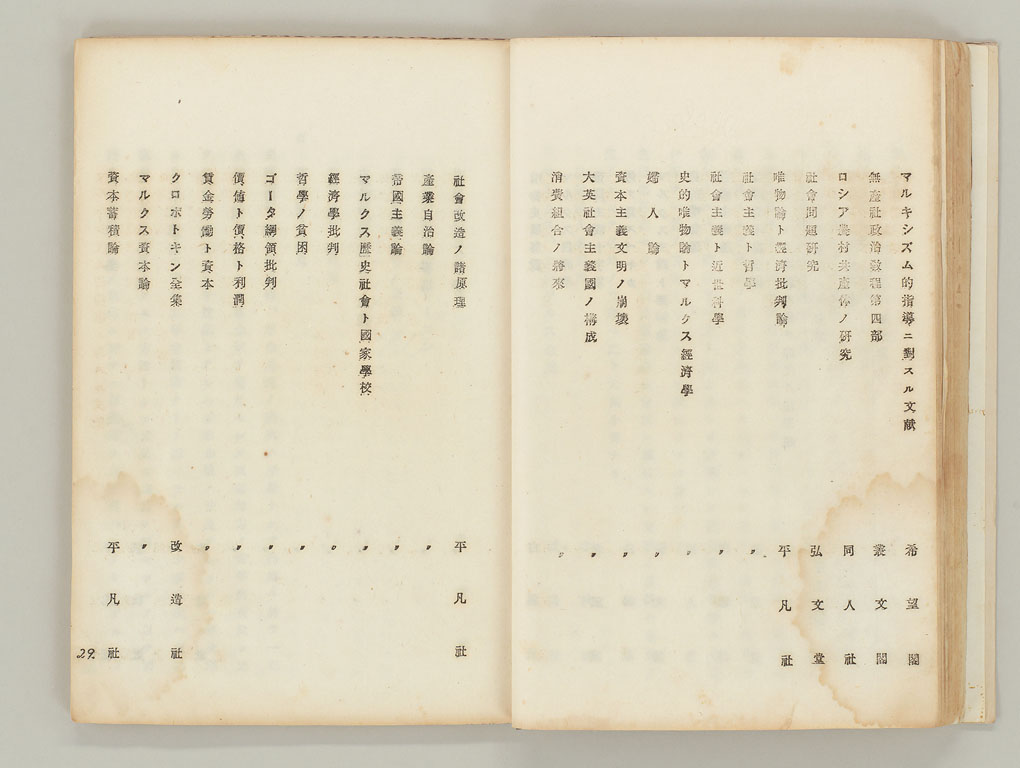 マルキシズム的指導ニ對スル文献 希望閣
無產社政治敎程第四部 叢文閣
ロシア農村共產体ノ研究 同人社
社會問題硏究 弘文堂
唯物論ト經濟批判論 平凡社
社會主義ト哲學 〃
社會主義ト近世科學 〃
史的唯物論トマルクス經濟學 〃
婦人論 〃
資本主義文明ノ崩壊 〃
大英社會主義國ノ構成 〃
消費組合ノ將來 〃
社會改造ノ諸原理 平凡社
產業自治論 〃
帝國主義論 〃
マルクス歷史社會ト國家學校 〃
經濟學批判 〃
哲學ノ貧困 〃
ゴータ綱領批判 〃
價値ト價格ト利潤 〃
賃金勞働ト資本 〃
クロポトキン全集 改造社
マルクス資本論 〃
資本蓄積論 平凡社
29.